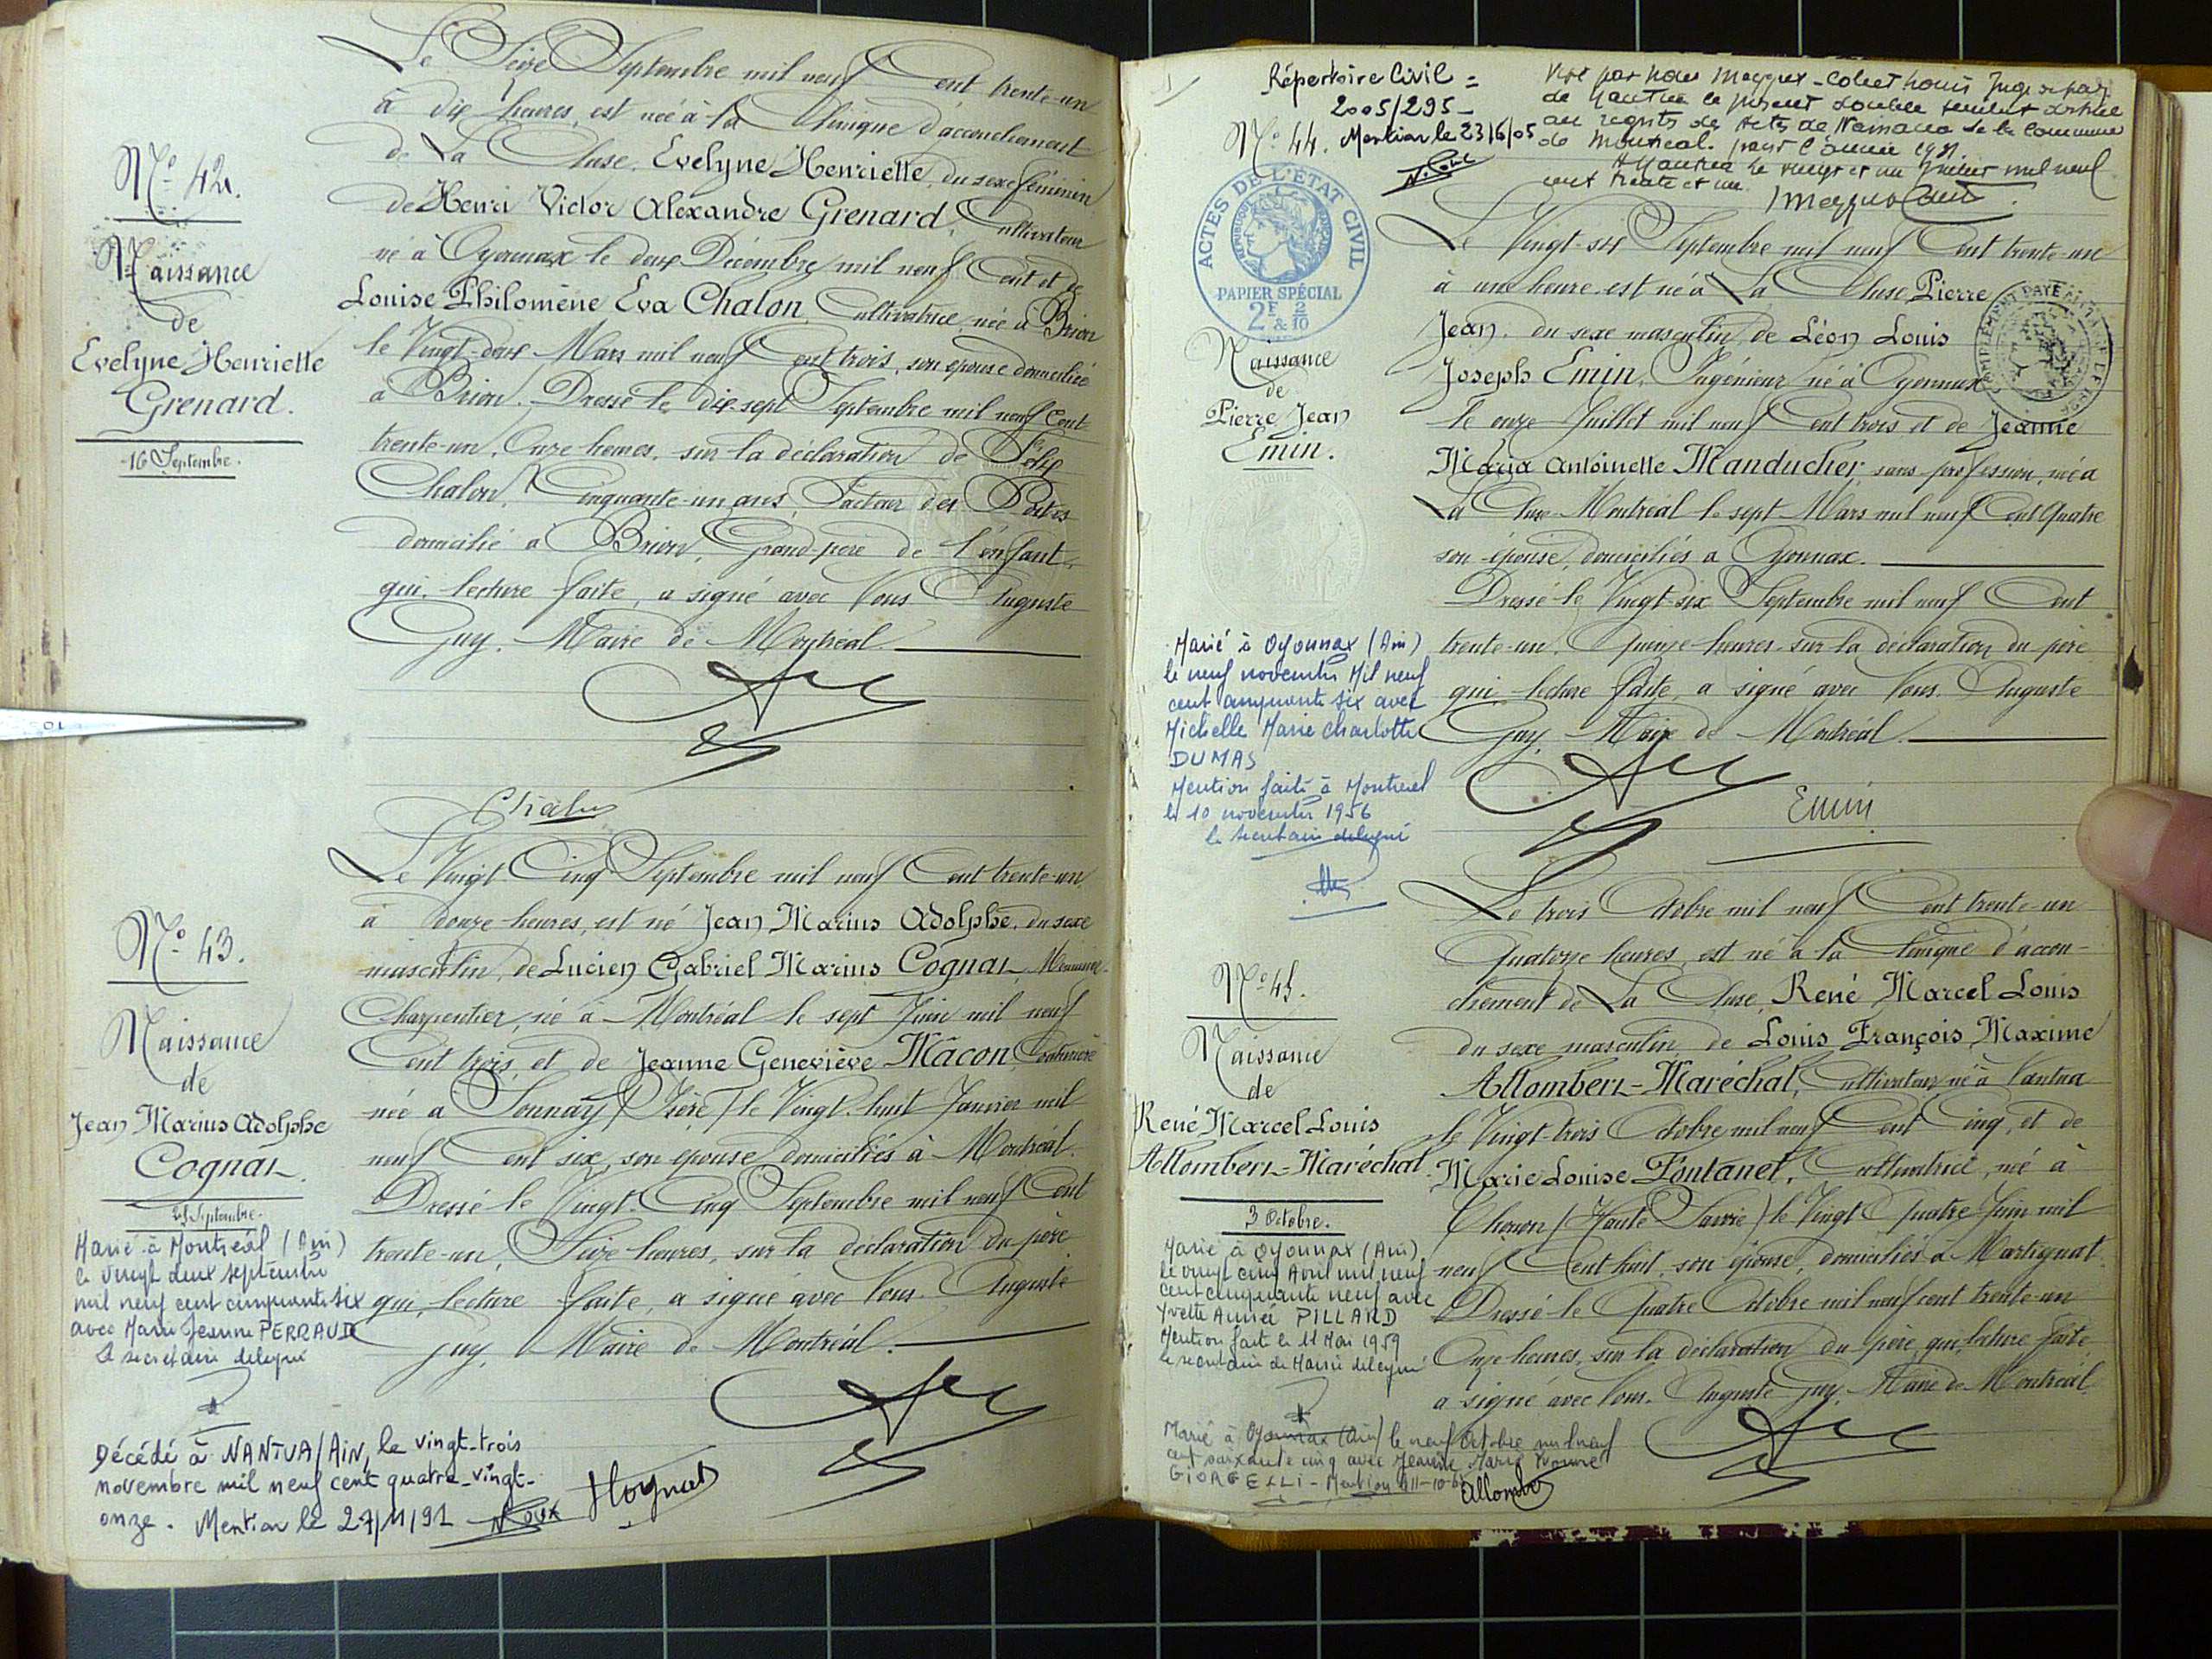 Le Seize Septembre mil neuf Cent trente-un
à dix heures, est née à la Clinique d'accouchement
de La Cluse, Evelyne Henriette, du sexe féminin
de Henri Victor Alexandre Grenard, Cultivateur
né à Oyonnax le deux Décembre mil neuf Cent et de
Louise Philomène Eva Chalon, Cultivatrice, née à Brion
le Vingt-deux Mars mil neuf Cent trois, son épouse domiciliés
à Brion. Dressé le dix-sept Septembre mil neuf Cent
trente-un, Onze heures, sur la déclaration de Félix
Chalon, Cinquante-un ans, Facteur des Postes
domicilié à Brion, Grand-père de l'enfant,
qui, lecture faite, a signé avec Nous Auguste
Guy, Maire de Montréal.
Chalon
No 42.
Naissance
de
Evelyne Henriette
Grenard.
16 Septembre.
Le Vingt-Cinq Septembre mil neuf Cent trente-un
à douze heures, est né Jean Marius Adolphe, du sexe
masculin, de Lucien Gabriel Marius Cognat, Menuisier-
Charpentier, né à Montréal le sept Juin mil neuf
Cent trois, et de Jeanne Geneviève Mâcon, Couturière
née à Sonnay (Isère) le Vingt-huit Janvier mil
neuf Cent six, son épouse domiciliés à Montréal.
Dressé le Vingt-Cinq Septembre mil neuf Cent
trente-un, Seize heures, sur la déclaration du père
qui, lecture faite, a signé avec Nous Auguste
Guy, Maire de Montréal.
No 43.
Naissance
de
Jean Marius Adolphe
Cognat.
25 Septembre.
Marié à Montréal (Ain)
le vingt deux septembre
mil neuf cent cinquante six
avec Marie Jeanne PERRAUD
Le secrétaire délégué
Décédé à NANTUA/AIN, le vingt-trois
novembre mil neuf cent quatre-vingt-
onze. Mention le 27/11/91
Répertoire Civil =
2005/295-
No 44. Mention le 23/6/05
Juge de paix
de Nantua le présent double feuillet destiné
au registre des Actes de Naissance de la Commune
de Montréal. pour l'année 1931.
A Nantua le vingt et un Juillet mil neuf
cent trente et un.
ACTES DE L'ÉTAT CIVIL
RÉPUBLIQUE FRANÇAISE
PAPIER SPÉCIAL
2F & 2/10
Naissance
de
Pierre Jean
Emin.
Le Vingt-six Septembre mil neuf Cent trente-un
à une heure est né à La Cluse, Pierre
Jean, du sexe masculin, de Léon Louis
Joseph Emin, Ingénieur né à Oyonnax
le onze Juillet mil neuf Cent trois et de Jeanne
Maria Antoinette Manducher, sans profession, née à
La Cluse-Montréal le sept Mars mil neuf Cent Quatre
son épouse, domiciliés à Oyonnax.
Dressé le Vingt-six Septembre mil neuf Cent
trente-un, Quinze heures sur la déclaration du père
qui, lecture faite, a signé avec Nous Auguste
Guy, Maire de Montréal.
Emin
Marié à Oyonnax (Ain)
le neuf novembre Mil neuf
cent cinquante six avec
Michelle Marie Charlotte
DUMAS
Mention faite à Montréal
le 10 novembre 1956
le secrétaire délégué
Le trois Octobre mil neuf Cent trente-un
Quatorze heures, est né à la Clinique d'accou-
chement de La Cluse, René Marcel Louis
du sexe masculin de Louis François Maxime
Allombert-Maréchal, Cultivateur né à Nantua
le Vingt-trois Octobre mil neuf Cent Cinq, et de
Marie Louise Fontanet, Cultivatrice, née à
Thonon (Haute Savoie) le Vingt Quatre Juin mil
neuf Cent huit, son épouse, domiciliés à Martignat.
Dressé le Quatre Octobre mil neuf cent trente-un
Onze heures, sur la déclaration du père, qui, lecture faite,
a signé avec Nous Auguste Guy, Maire de Montréal.
No 45.
Naissance
de
René Marcel Louis
Allombert-Maréchal
3 Octobre.
Marié à Oyonnax (Ain)
le vingt cinq Avril mil neuf
cent cinquante neuf avec
Yvette Aimée PILLARD
Mention faite le 11 Mai 1959
le secrétaire de Mairie délégué
Marié à Oyonnax (Ain) le neuf Octobre mil neuf
cent soixante cinq avec Jeanne Marie Yvonne
GIORGELLI - Mention
Allombert